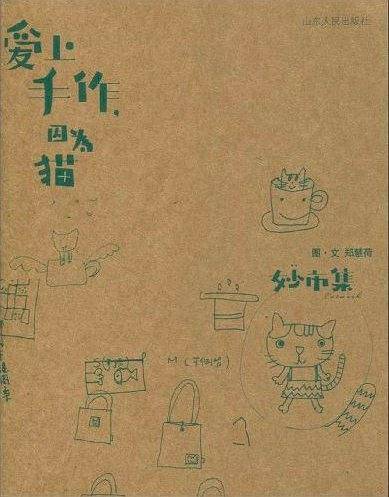 山东人民出版社
爱上
手作,
因为
猫
图·文 郑慧荷
妙市集